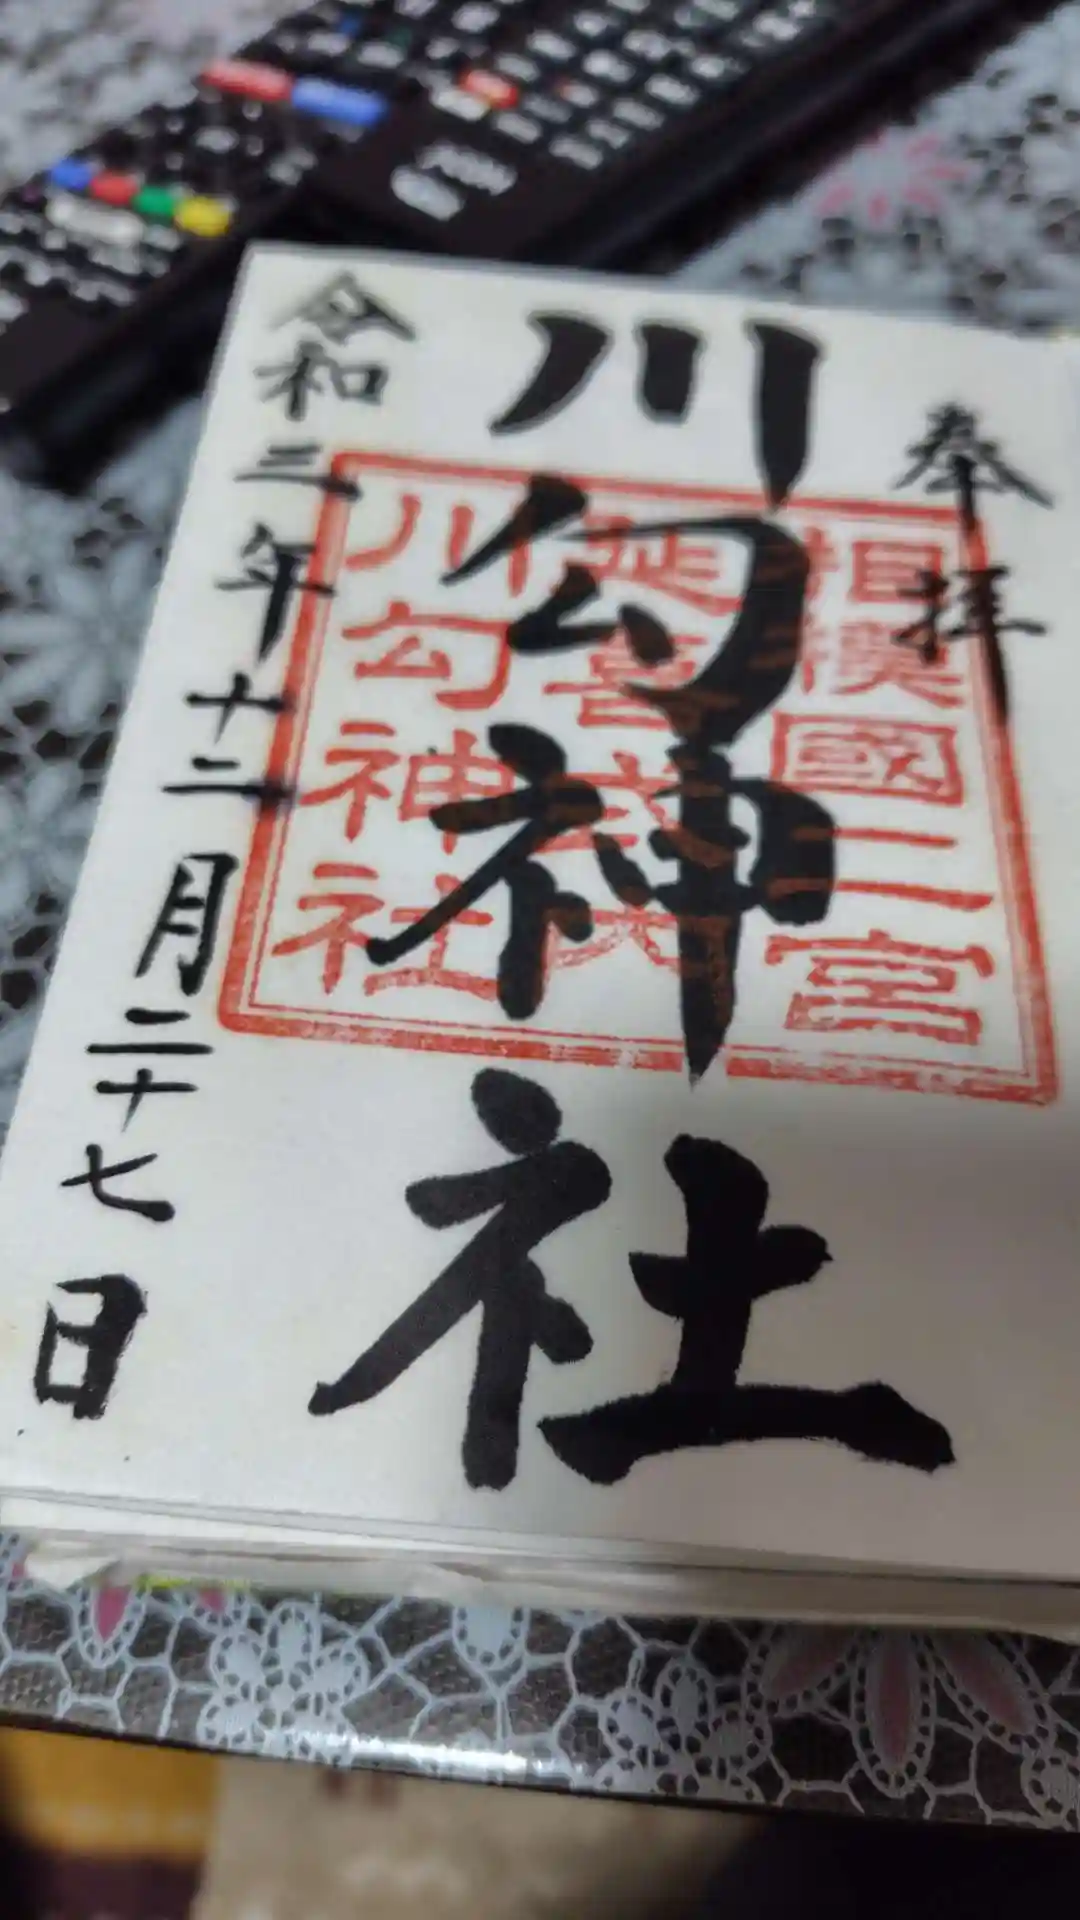 奉拝
相模國二宮
延喜式内
川勾神社
川勾神社
令和三年十二月二十七日